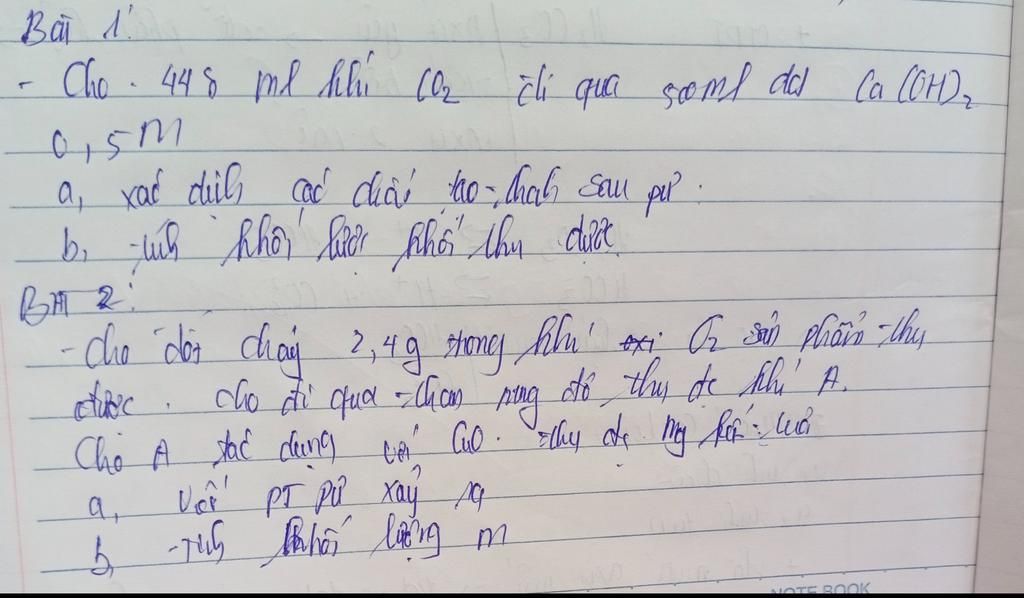 Bài 1:
- Cho 448 ml khí CO2 đi qua 500ml dd Ca(OH)2
0,5M
a, xác định các chất tạo thành sau pứ.
b, tính khối lượng thu được
BÀI 2:
- Cho đốt cháy 2,4g trong khí oxi O2 sản phẩm thu
được. cho đi qua than nóng đỏ thu đc khí A.
Cho A tác dụng với CuO. thu đc mg kết tủa
a, Viết PT pứ xảy ra
b, Tính khối lượng m
NOTE BOOK